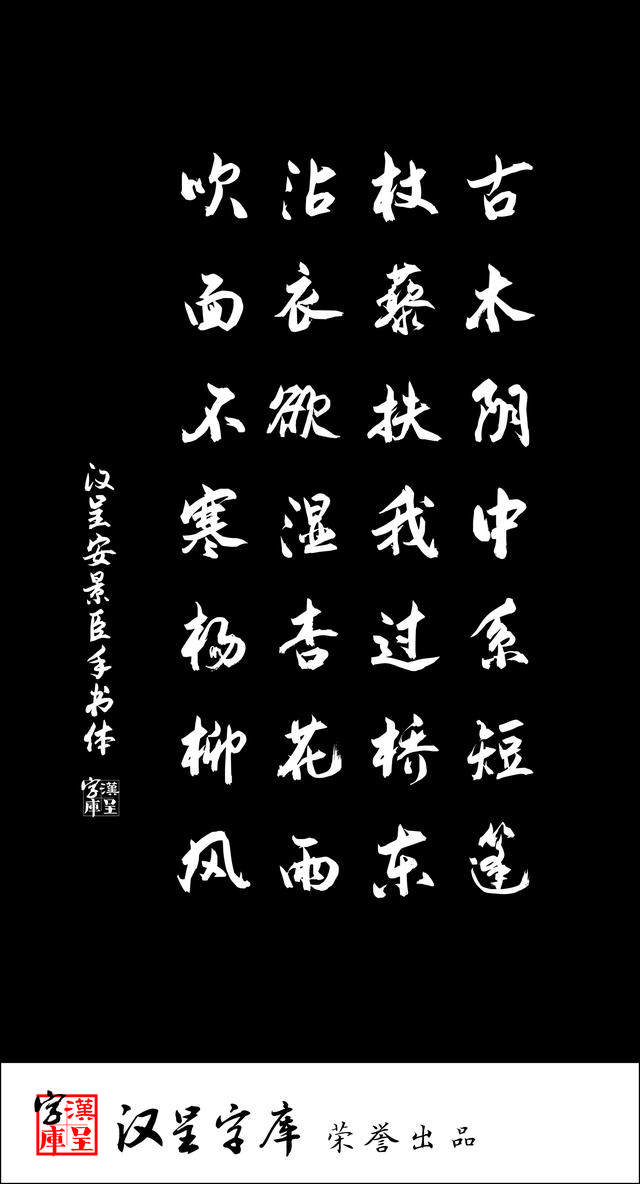 古木阴中系短篷
杖藜扶我过桥东
沾衣欲湿杏花雨
吹面不寒杨柳风
汉呈安景臣手书体
漢呈字庫
漢呈字庫
汉呈字库 荣誉出品